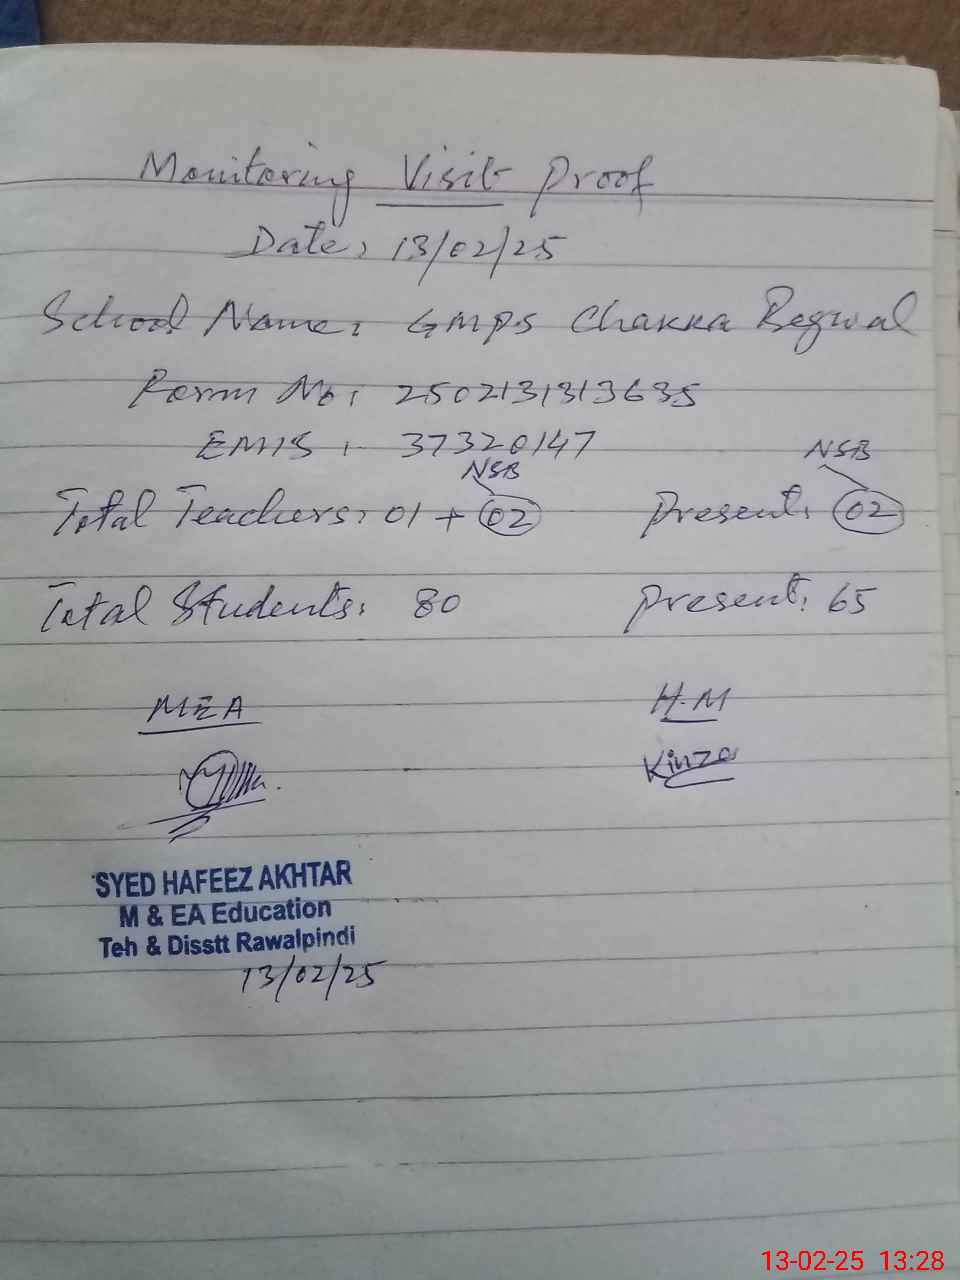 Monitoring Visit Proof
Date: 13/02/25
School Name: GMPS Chakra Begwal
Form No: 2502131313635
EMIS: 37320147
NSB NSB
Total Teachers: 01 + 02 Present: 02
Total Students: 80 Present: 65
MEA H.M
Kinza
SYED HAFEEZ AKHTAR
M & EA Education
Teh & Disstt Rawalpindi
13/02/25
13-02-25 13:28